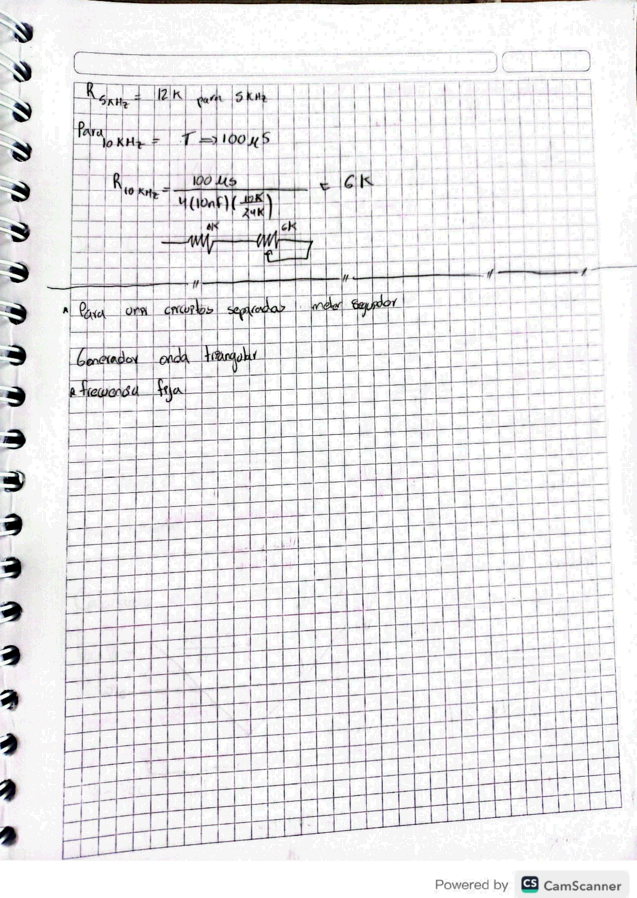 R5KHz = 12K para 5KHz
Para 10KHz = T => 100µS
R10KHz = 100µs / 4(10nf)(10K/24K) = 6K
6K
* Para unir circuitos separadas meter seguidor
Generador onda triangular
* frecuencia fija
Powered by CS CamScanner